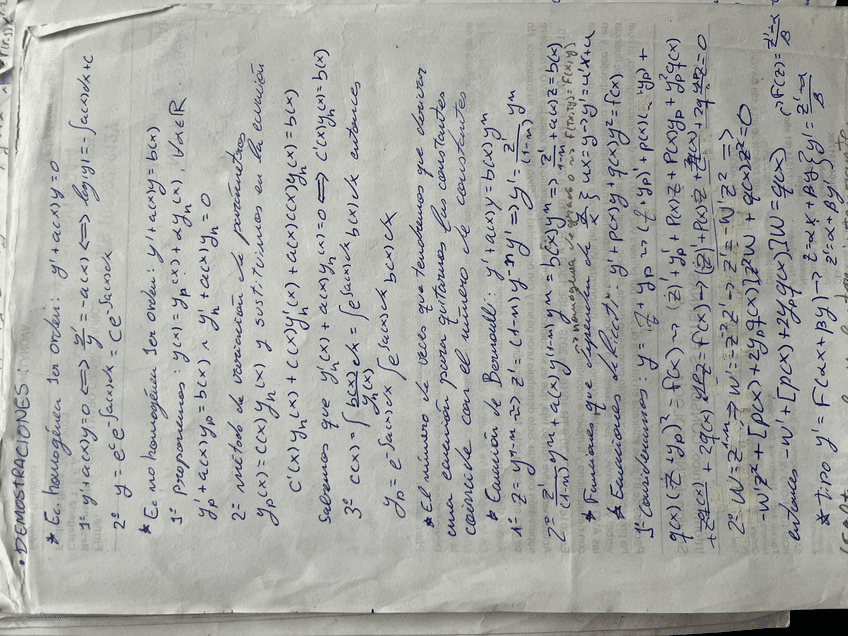 • DEMOSTRACIONES:
* Ec. homogénea 1er orden: y' + a(x)y = 0
1º y' + a(x)y = 0 <=> y'/y = -a(x) <=> log|y| = -∫a(x)dx + c
2º y = e^c e^{-∫a(x)dx} = C e^{-∫a(x)dx}
* Ec no homogénea 1er orden: y' + a(x)y = b(x)
1º proponemos: y(x) = y_p(x) + α y_h(x), ∀α∈ℝ.
y_p' + a(x)y_p = b(x) ∧ y_h' + a(x)y_h = 0
2º método de variación de parámetros
y_p(x) = c(x) y_h(x) y sustituimos en la ecuación
c'(x) y_h(x) + c(x) y_h'(x) + a(x) c(x) y_h(x) = b(x)
Sabemos que y_h'(x) + a(x) y_h(x) = 0 <=> c'(x) y_h(x) = b(x)
3º c(x) = ∫ b(x)/y_h(x) dx = ∫ e^{∫a(x)dx} b(x) dx entonces
y_p = e^{-∫a(x)dx} ∫ e^{∫a(x)dx} b(x) dx
* El número de veces que tendremos que derivar
una ecuación para quitarnos las constantes
coincide con el número de constantes
* Ecuación de Bernoulli: y' + a(x)y = b(x)y^m
1º z = y^{1-m} => z' = (1-m) y^{-m} y' => y' = z'/(1-m) y^m
2º z'/(1-m) y^m + a(x) y^{(1-m)} y^m = b(x) y^m => z'/(1-m) + a(x) z = b(x)
homogénea de grado 0 => f(Tx,Ty) = F(x,y)
* Funciones que dependen de y/x { ux = y -> y' = u'x + u
* Ecuaciones de Riccati: y' + p(x)y + q(x)y² = f(x)
1º Consideramos: y = z + y_p => (z + y_p)' + p(x)(z + y_p) +
q(x)(z + y_p)² = f(x) => (z)' + y_p' + p(x)z + p(x)y_p + y_p² q(x)
+ z² q(x) + 2q(x) y_p z = f(x) -> z' + p(x)z + z² q(x) + 2q y_p z = 0
-w'z² + [p(x) + 2y_p q(x)] z² w + q(x) z² = 0
entonces -w' + [p(x) + 2y_p q(x)] w = q(x)
* tipo y' = F(αx + βy) -> z = αx + βy
z' = α + βy' } y' = (z' - α)/β